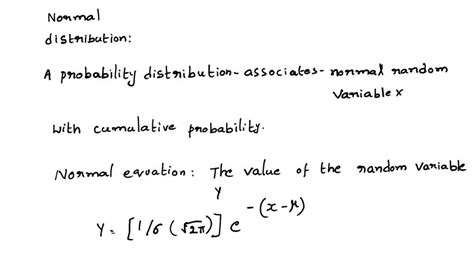 Normal
distribution:
A probability distribution - associates - normal random
Variable x
with cumulative probability.
Normal equation: The value of the random variable
Y
Y = [1/σ (√2π)] e^-(x-μ)